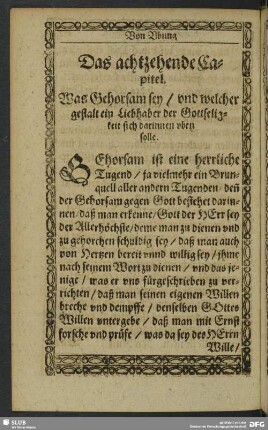 Von Vbung
Das achtzehende Ca-
pitel.
Was Gehorsam sey / vnd welcher
gestalt ein Liebhaber der Gottselig-
keit sich darinnen vben
solle.
GEhorsam ist eine herrliche
Tugend / ja vielmehr ein Brun-
quell aller andern Tugenden / deñ
der Gehorsam gegen Gott bestehet darin-
nen / daß man erkenne / Gott der HErr sey
der Allerhöchste / deme man zu dienen vnd
zu gehorchen schuldig sey / daß man auch
von Hertzen bereit vnnd willig sey / jhme
nach seinem Wort zu dienen / vnd das je-
nige / was er vns fürgeschrieben zu ver-
richten / daß man seinen eigenen Willen
breche vnd dempffe / denselben GOttes
Willen vntergebe / daß man mit Ernst
forsche vnd prüfe / was da sey der HErrn
Wille /
SLUB
DFG